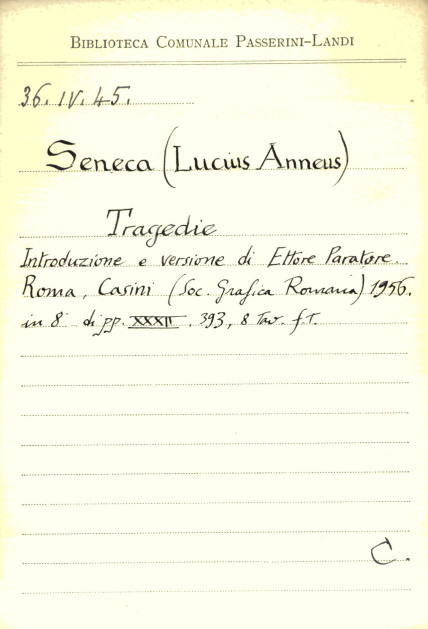 BIBLIOTECA COMUNALE PASSERINI-LANDI
36. IV. 45.
Seneca (Lucius Anneus)
Tragedie
Introduzione e versione di Ettore Paratore.
Roma, Casini (Soc. Grafica Romana) 1956.
in 8° di pp. XXXII, 393, 8 Tav. f.T.
C.